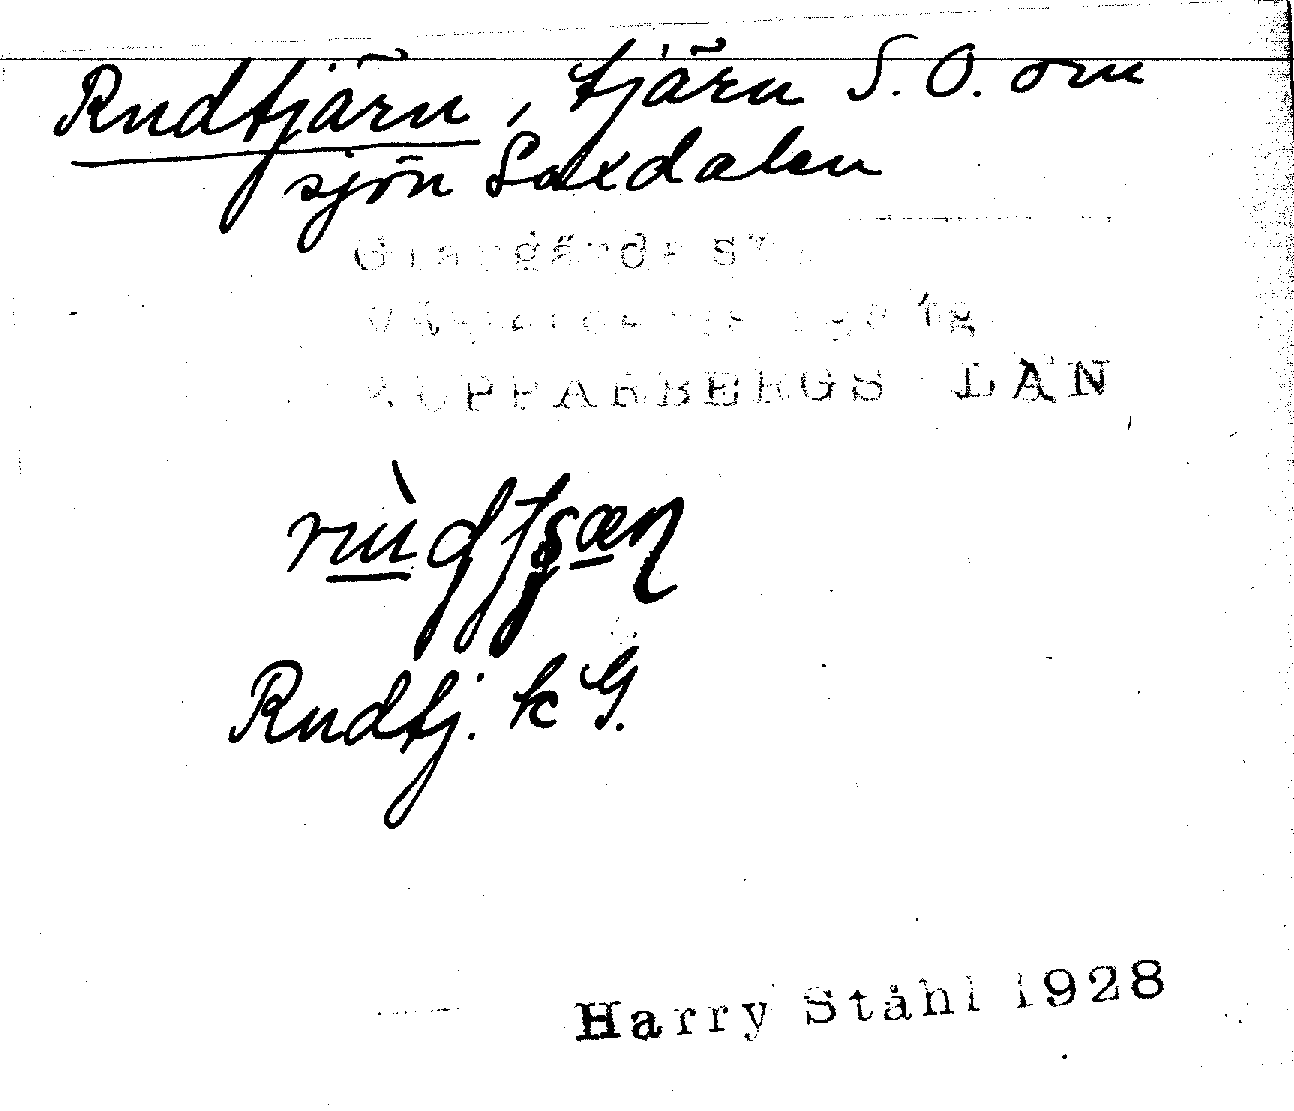 Rudtjärn, tjärn S.O. om
sjön Saxdalen
Grangärde sn
KOPPARBERGS LÄN
Rudtj. k G.
Harry Ståhl 1928